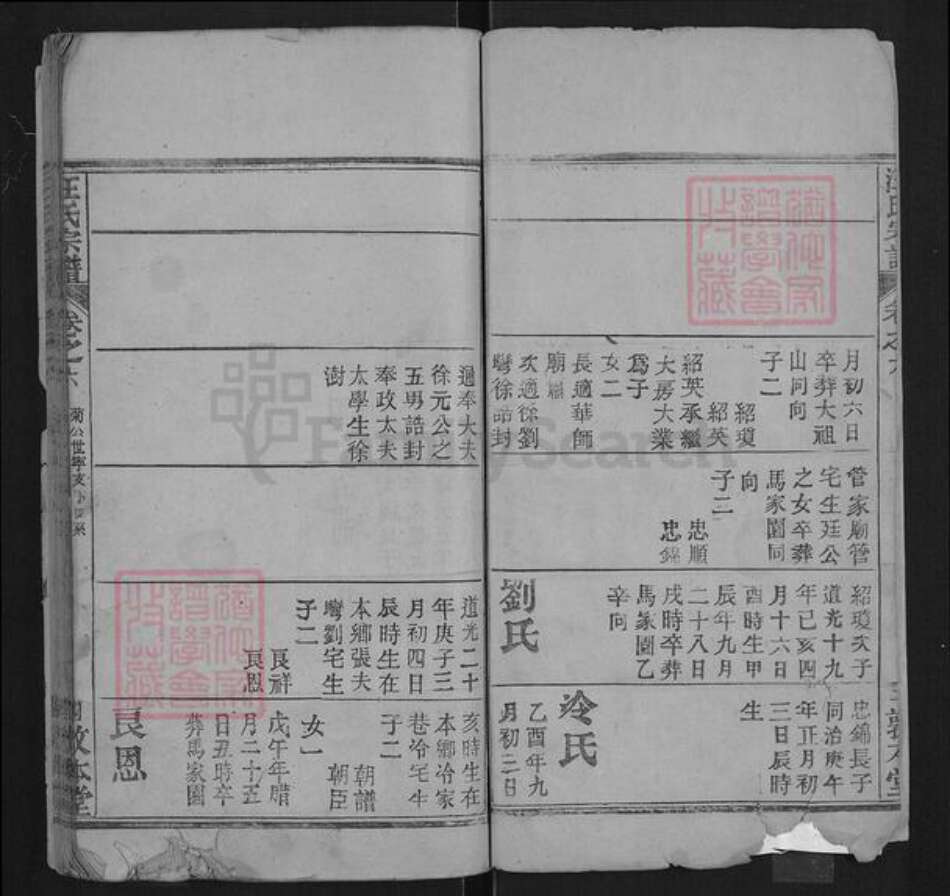 汪氏宗譜
卷之六
月初六日
卒葬大祖
山同向
子二
紹瓊
紹英
紹英承繼
大房大業
爲子
女二
長適華師
廟繼
次適徐劉
灣徐誥封
管家廟管
宅生廷公
之女卒葬
馬家園同
向
子二
忠順
忠錦
紹瓊次子
道光十九
年己亥四
月十六日
酉時生甲
辰年九月
二十八日
戌時卒葬
馬家園乙
辛向
劉氏
忠錦長子
同治庚午
年正月初
三日辰時
生
冷氏
乙酉年九
月初二日
汪氏宗譜
卷之六
通奉大夫
徐元公之
五男誥封
奉政大夫
太學生徐
澍
道光二十
年庚子三
月初四日
辰時生在
本鄉張夫
灣劉宅生
子二
良祥
良恩
亥時生在
本鄉冷家
巷冷宅生
子二
朝譜
朝臣
女一
戊午年腊
月二十五
日丑時卒
葬馬家園
良恩
敦本堂
FamilySearch